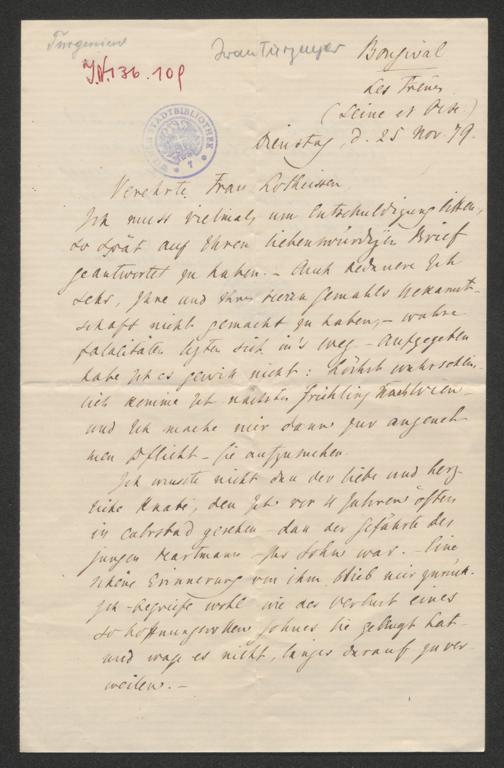 Turgeniew
Iwan Turgenjew
J.N. 136.109
Bougival
Les Frênes
(Seine et Oise.)
STADTBIBLIOTHEK
Dienstag, d. 25 Nov. 79.
Verehrte Frau Lotheissen
Ich muss vielmals um Entschuldigung bitten,
so spät auf Ihren liebenswürdigen Brief
geantwortet zu haben. – Auch bedauere Ich
sehr, Ihre und Ihres Herrn Gemahls Bekannt-
schaft nicht gemacht zu haben, – wahre
Fatalitäten legten sich in's Weg – Aufgegeben
habe Ich es gewiss nicht: höchst wahrschein-
lich komme Ich nächsten Frühling nach Wien –
und Ich mache mir dann zur angeneh-
men Pflicht – Sie aufzusuchen.
Ich wusste nicht dass der liebe und herz-
liche Knabe, den Ich vor 4 Jahren öfters
in Carlsbad gesehen – dass der Gefährte des
jungen Hartmann – Ihr Sohn war. – Eine
schöne Erinnerung von ihm blieb mir zurück.
Ich begreife wohl wie der Verlust eines
so hoffnungsvollen Sohnes Sie gebeugt hat –
und wage es nicht, länger darauf zu ver-
weilen. –